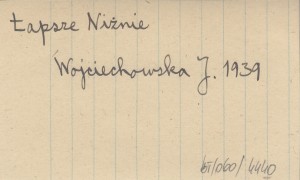 Łapsze Niżnie
Wojciechowska J. 1939
bl/060/4440